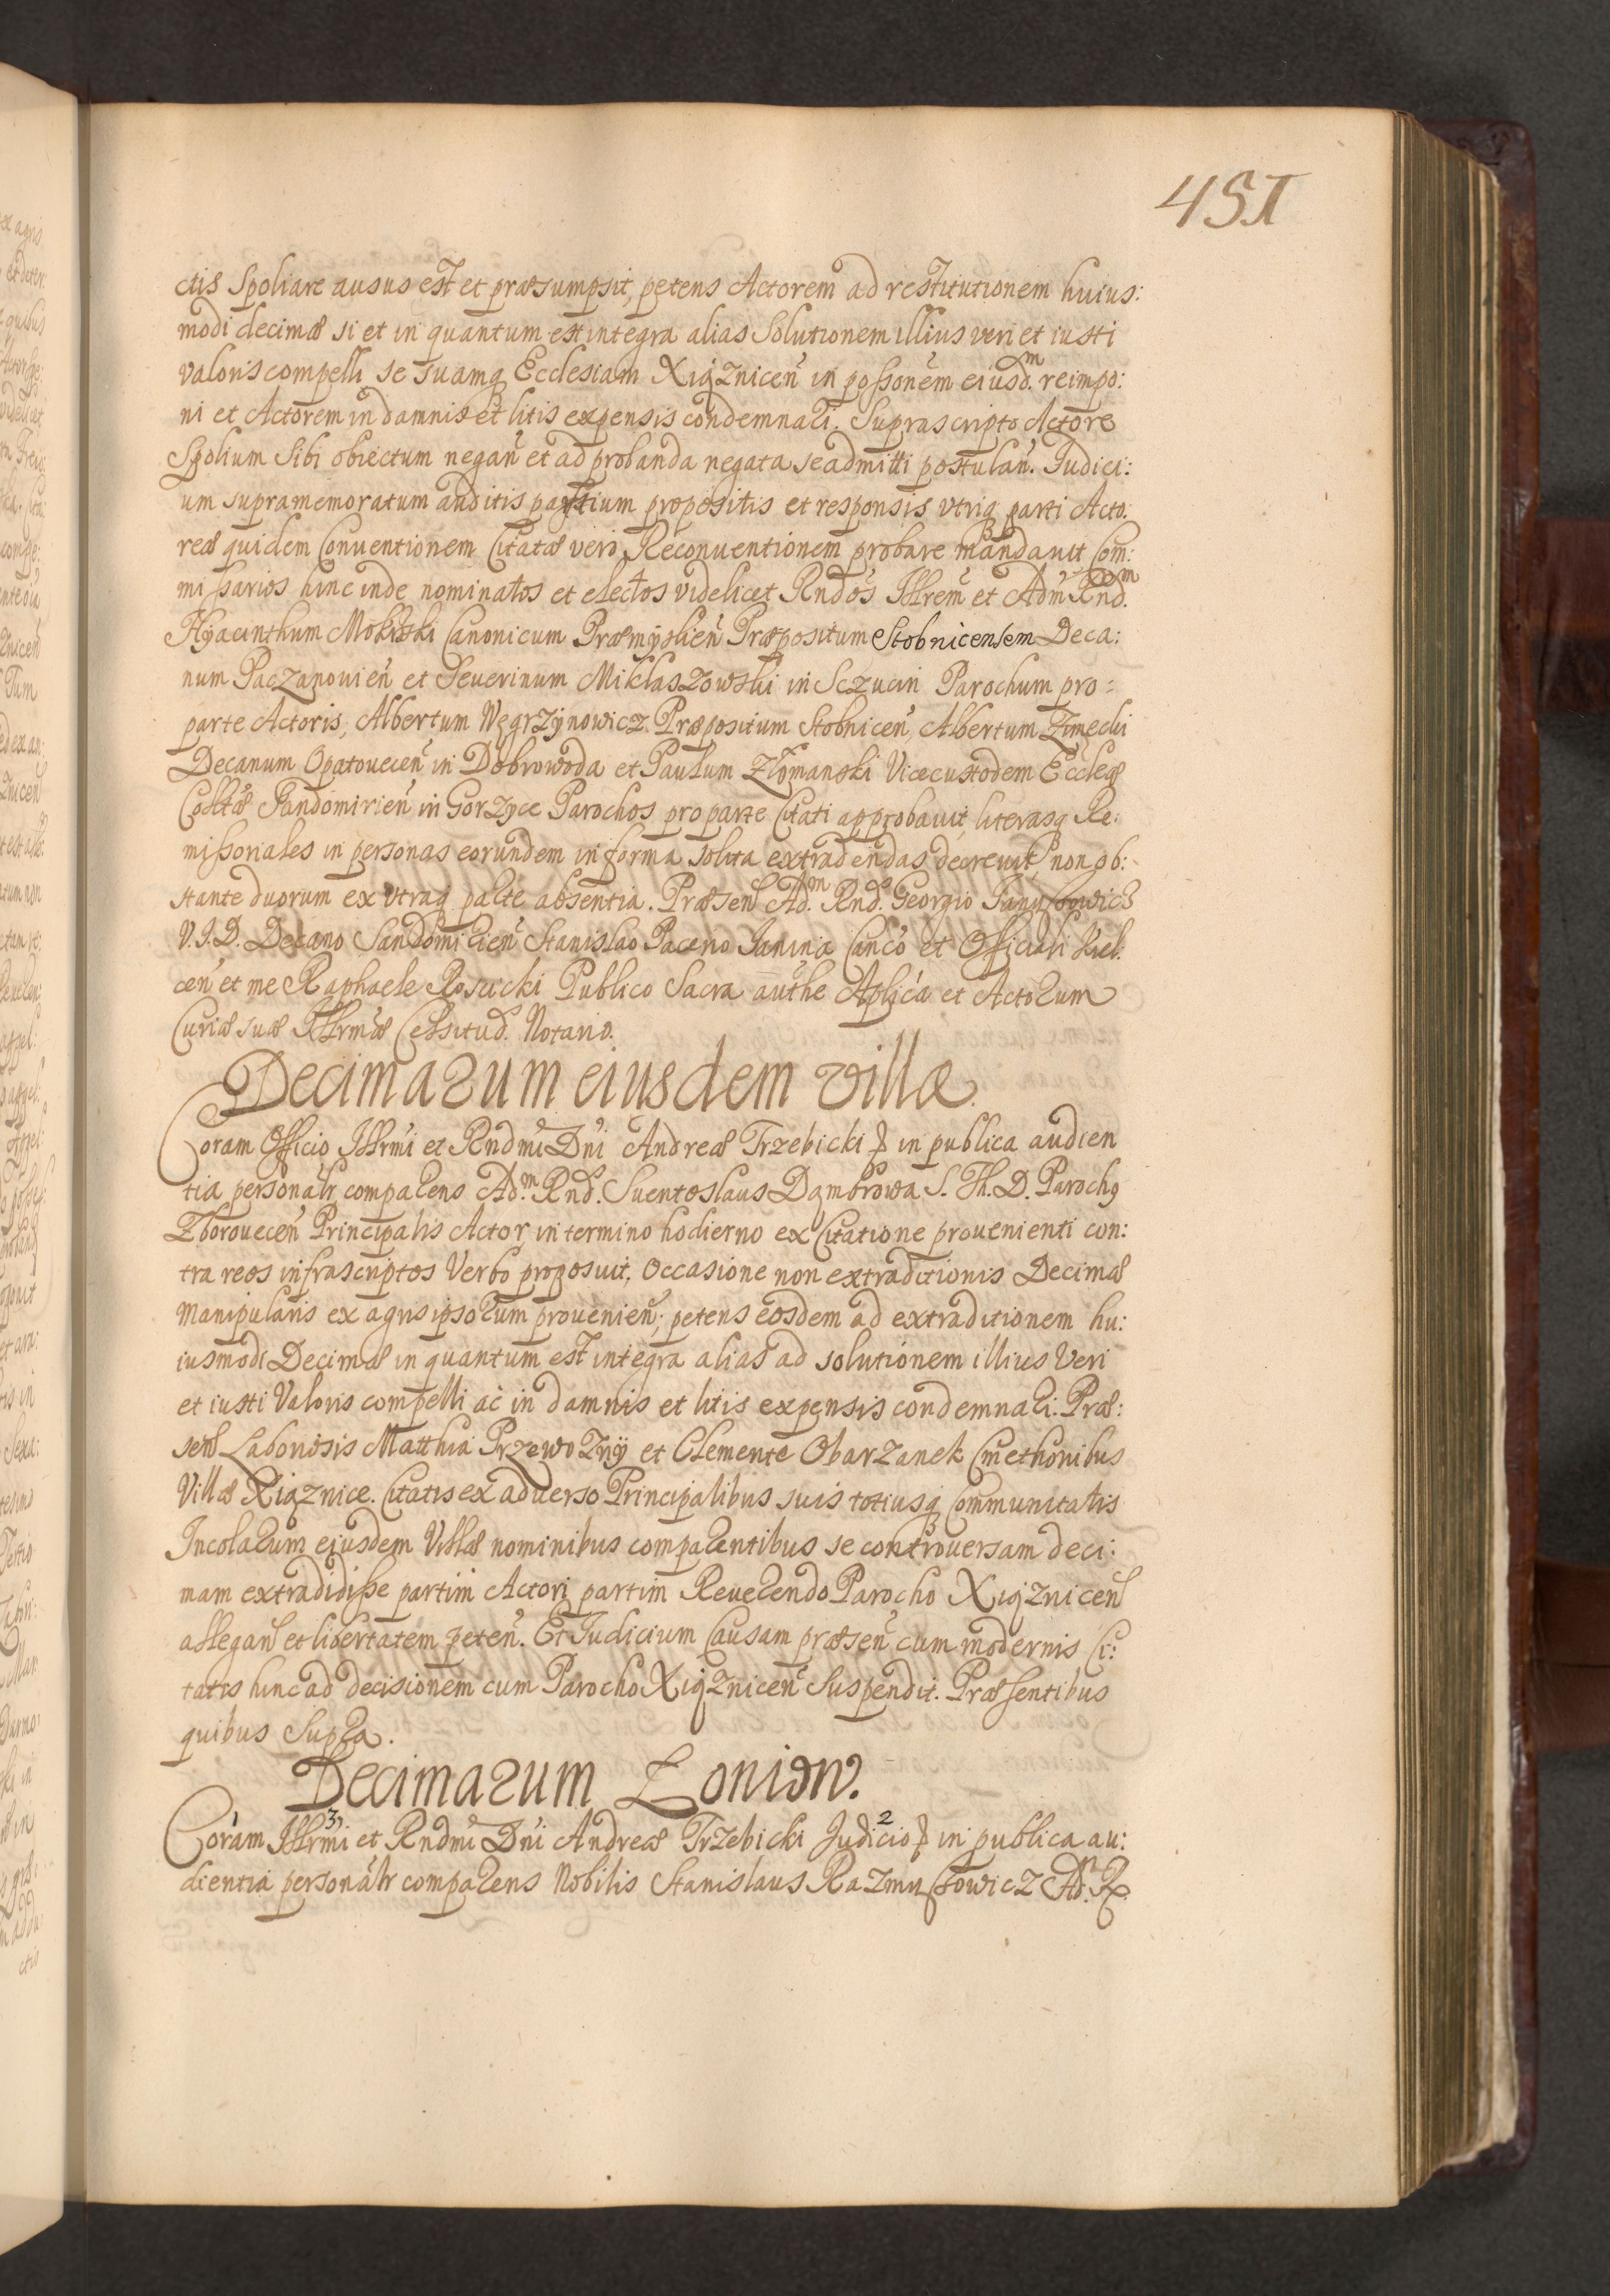 451
ctis Spoliare ausus est et præsumpsit, petens Actorem ad restitutionem huius:
modi decimæ si et in quantum est integra alias Solutionem illius veri et iusti
valoris compelli se suamq Ecclesiam Xiąznicen̄ in possonem eiusd.m reimpo:
ni et Actorem in damnis et litis expensis condemnari. Suprascripto Actore
Spolium Sibi obiectum negan̄ et ad probanda negata se admitti postulan̄. Iudici:
um supramemoratum auditis partium propositis et responsis vtriq parti Acto:
reæ quidem Conventionem Citatæ vero Reconuentionem probare mandauit Com:
missarios hinc inde nominatos et electos videlicet Rndos Illrem et Adm Rnd.m
Hyacinthum Mokrski Canonicum Præmyslien̄ Præpositum Stobnicensem Deca:
num Paczanouien̄ et Seuerinum Miklaszowski in Sczucin Parochum pro=
parte Actoris, Albertum Węgrzynowicz Præpositum Stobnicen̄, Albertum
Decanum Opatouecen̄ in Dobrowoda et Paulum Złomanski Vicecustodem Eccleæ
Colltæ Sandomirien̄ in Gorzyce Parochos pro parte Citati approbauit, literasq Re:
missoriales in personas eorundem in forma solita extradendas decreuit, non ob:
stante duorum ex vtraq parte absentia. Præsen̄ Ad.m Rnd. Georgio
V.I.D. Decano Sandomirien̄ Stanislao Paceno Janina Canco et Officiali Kiel:
cen̄ et me Raphaele Rosucki Publico Sacra authe Aplica et Actorum
Curiæ suæ Illrmæ Celsitud. Notario.
Decimarum eiusdem villæ.
Coram Officio Illrmi et Rndmi Dni Andreæ Trzebicki in publica audien
tia personalr comparens Ad.m Rnd. Suentoslaus Dąmbrowa S. Th. D. Parochꝯ
Zborouecen̄ Principalis Actor in termino hodierno ex Citatione prouenienti con:
tra reos infrascriptos Verbo proposuit, Occasione non extraditionis Decimæ
Manipularis ex agris ipsorum prouenien̄; petens eosdem ad extraditionem hu:
iusmodi Decimæ in quantum est integra alias ad solutionem illius Veri
et iusti Valoris compelli ac in damnis et litis expensis condemnari. Præ:
sen̄ Laboriosis Matthia Przewozny et Clemente Obarzanek Cmethonibus
Villæ Xiąznice. Citatis ex aduerso Principalibus suis totiusq Communitatis
Incolarum eiusdem Villæ nominibus comparentibus se controuersam deci:
mam extradidisse partim Actori partim Reuerendo Parocho Xiąznicen̄
allegan̄ et libertatem peten̄. Et Iudicium Causam præsen̄ cum modernis Ci:
tatis hinc ad decisionem cum Parocho Xiąznicen̄ Suspendit. Præsentibus
quibus Supra.
Decimarum Zoniow.
Coram Illrmi 3 et Rndmi Dni Andreæ Trzebicki Judicio 2 in publica au:
dientia personalr comparens Nobilis Stanislaus Ad.m R.